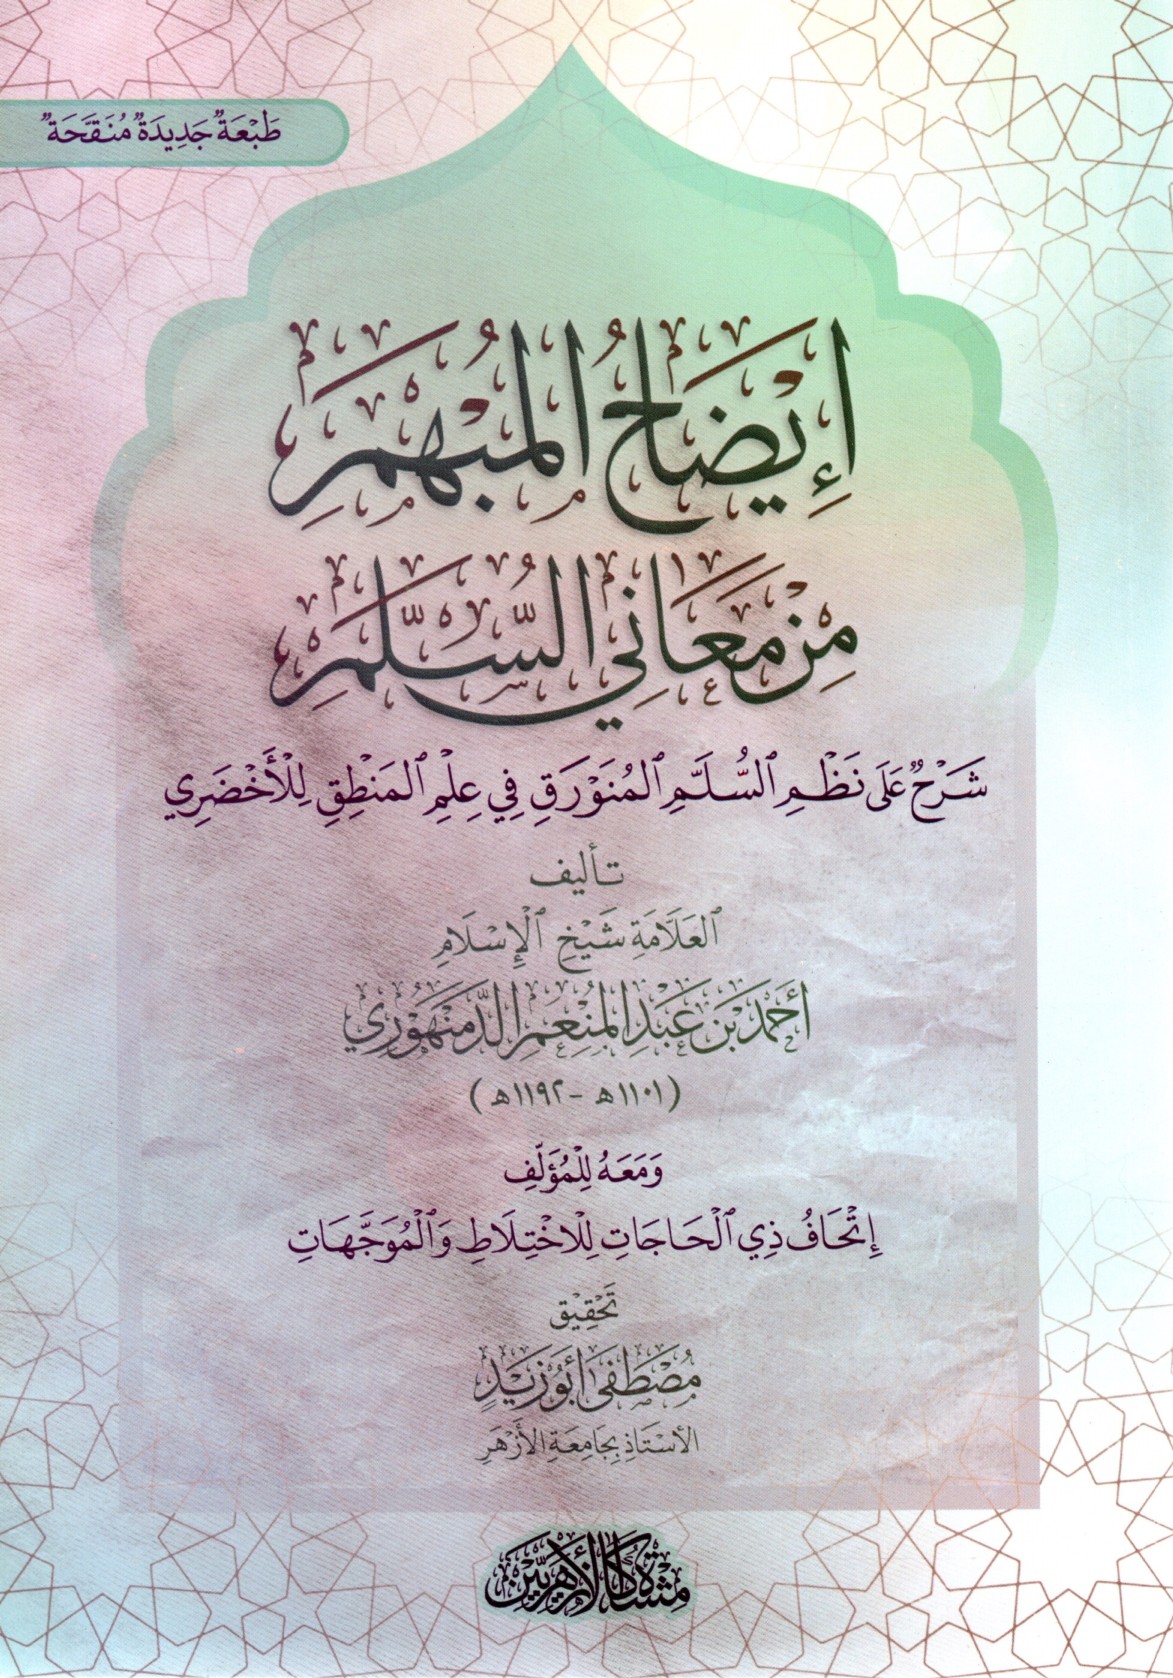 طَبْعَةٌ جَدِيدَةٌ مُنَقَّحَةٌ
إِيضَاحُ المُبْهَمِ
مِنْ مَعَانِي السُّلَّمِ
شَرْحٌ عَلَى نَظْمِ ٱلسُّلَّمِ ٱلمُنَوْرَقِ فِي عِلْمِ ٱلمَنْطِقِ لِلْأَخْضَرِي
تأليف
ٱلعَلَّامَةِ شَيْخِ ٱلْإِسْلَامِ
أَحْمَدَ بْنِ عَبْدِ المُنْعِمِ الدَّمَنْهُورِي
(١١٠١هـ - ١١٩٢هـ)
وَمَعَهُ لِلْمُؤَلِّفِ
إِتْحَافُ ذِي ٱلْحَاجَاتِ لِلِاخْتِلَاطِ وَٱلْمُوَجَّهَاتِ
تَحْقِيْق
مُصْطَفَى أَبُو زَيْدٍ
الأُسْتَاذِ بِجَامِعَةِ الأَزْهَرِ
مشكاة الأزهريين